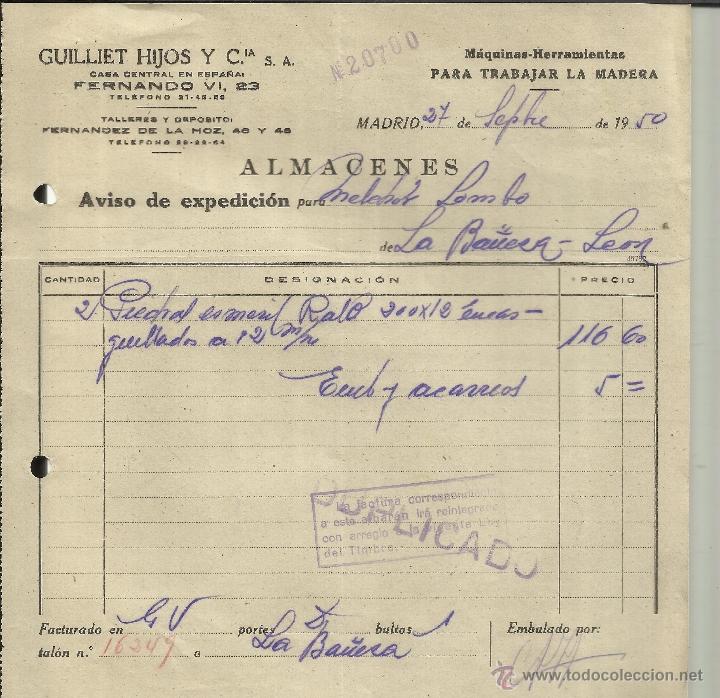 GUILLIET HIJOS Y C.IA S. A.
CASA CENTRAL EN ESPAÑA:
FERNANDO VI, 23
TELEFONO
TALLERES Y DEPOSITO:
FERNANDEZ DE LA HOZ, 46 Y 48
TELEFONO
Nº 20700
Máquinas-Herramientas
PARA TRABAJAR LA MADERA
MADRID, 27 de Septre de 1950
ALMACENES
Aviso de expedición para Melchor Lombo
de La Bañeza - Leon
CANTIDAD DESIGNACIÓN PRECIO
2 Piedras esmeril 200x12 encas-
quillados a 12 m/m 116 60
Emb y acarreos 5 =
La factura correspondiente
a este albarán irá reintegrada
con arreglo a la vigente Ley
del Timbre.
DUPLICADO
Facturado en G V portes D bultos 1 Embalado por:
talón n.º 16247 a La Bañeza
todocoleccion.net